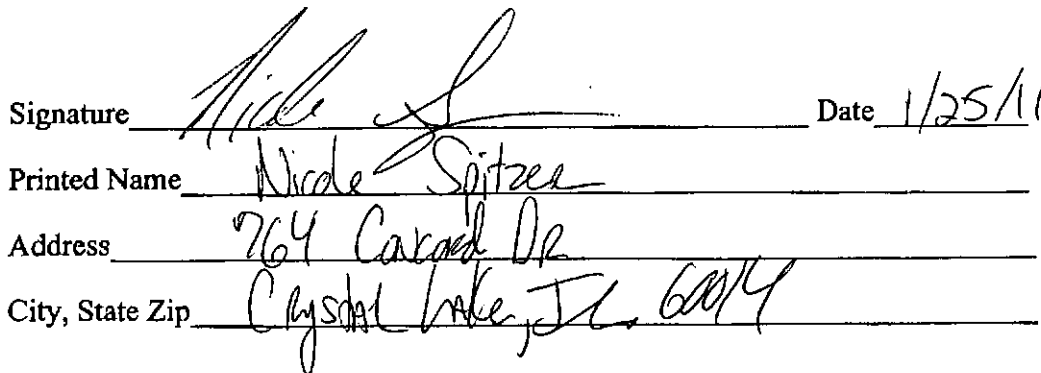 Signature Nicole S Date 1/25/1
Printed Name Nicole Spitzer
Address 764 Concord DR
City, State Zip Crystal Lake, IL. 60014